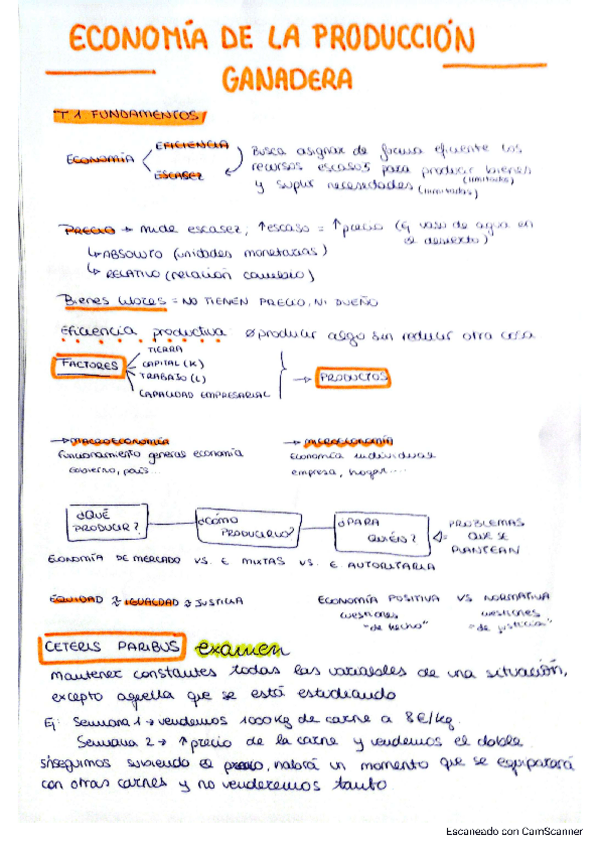 ECONOMÍA DE LA PRODUCCIÓN
GANADERA
T 1. FUNDAMENTOS
ECONOMÍA
EFICIENCIA
ESCASEZ
Busca asignar de forma eficiente los
recursos escasos para producir bienes
(limitados)
y suplir necesidades (ilimitadas)
PRECIO → mide escasez, ↑escaso = ↑precio (Ej vaso de agua en
el desierto)
↳ ABSOLUTO (unidades monetarias)
↳ RELATIVO (relación cambio)
BIENES LIBRES = NO TIENEN PRECIO, NI DUEÑO
Eficiencia productiva Ø producir algo sin reducir otra cosa
FACTORES
TIERRA
CAPITAL (K)
TRABAJO (L)
CAPACIDAD EMPRESARIAL
→ PRODUCTOS
→ MACROECONOMÍA
Funcionamiento general economía
Gobierno, país...
→ MICROECONOMÍA
Economía individual
empresa, hogar....
¿QUÉ
PRODUCIR?
¿CÓMO
PRODUCIRLO?
¿PARA
QUIÉN?
PROBLEMAS
QUE SE
PLANTEAN
ECONOMÍA DE MERCADO VS. E MIXTAS VS. E AUTORITARIA
EQUIDAD ≠ IGUALDAD ≠ JUSTICIA
ECONOMÍA POSITIVA VS NORMATIVA
cuestiones
"de hecho"
cuestiones
"de justicia"
CETERIS PARIBUS examen
mantener constantes todas las variables de una situación,
excepto aquella que se está estudiando
Ej: Semana 1 → vendemos 1000 kg de carne a 8€/kg.
Semana 2 → ↑ precio de la carne y vendemos el doble
si seguimos subiendo el precio, habrá un momento que se equiparará
con otras carnes y no venderemos tanto
Escaneado con CamScanner